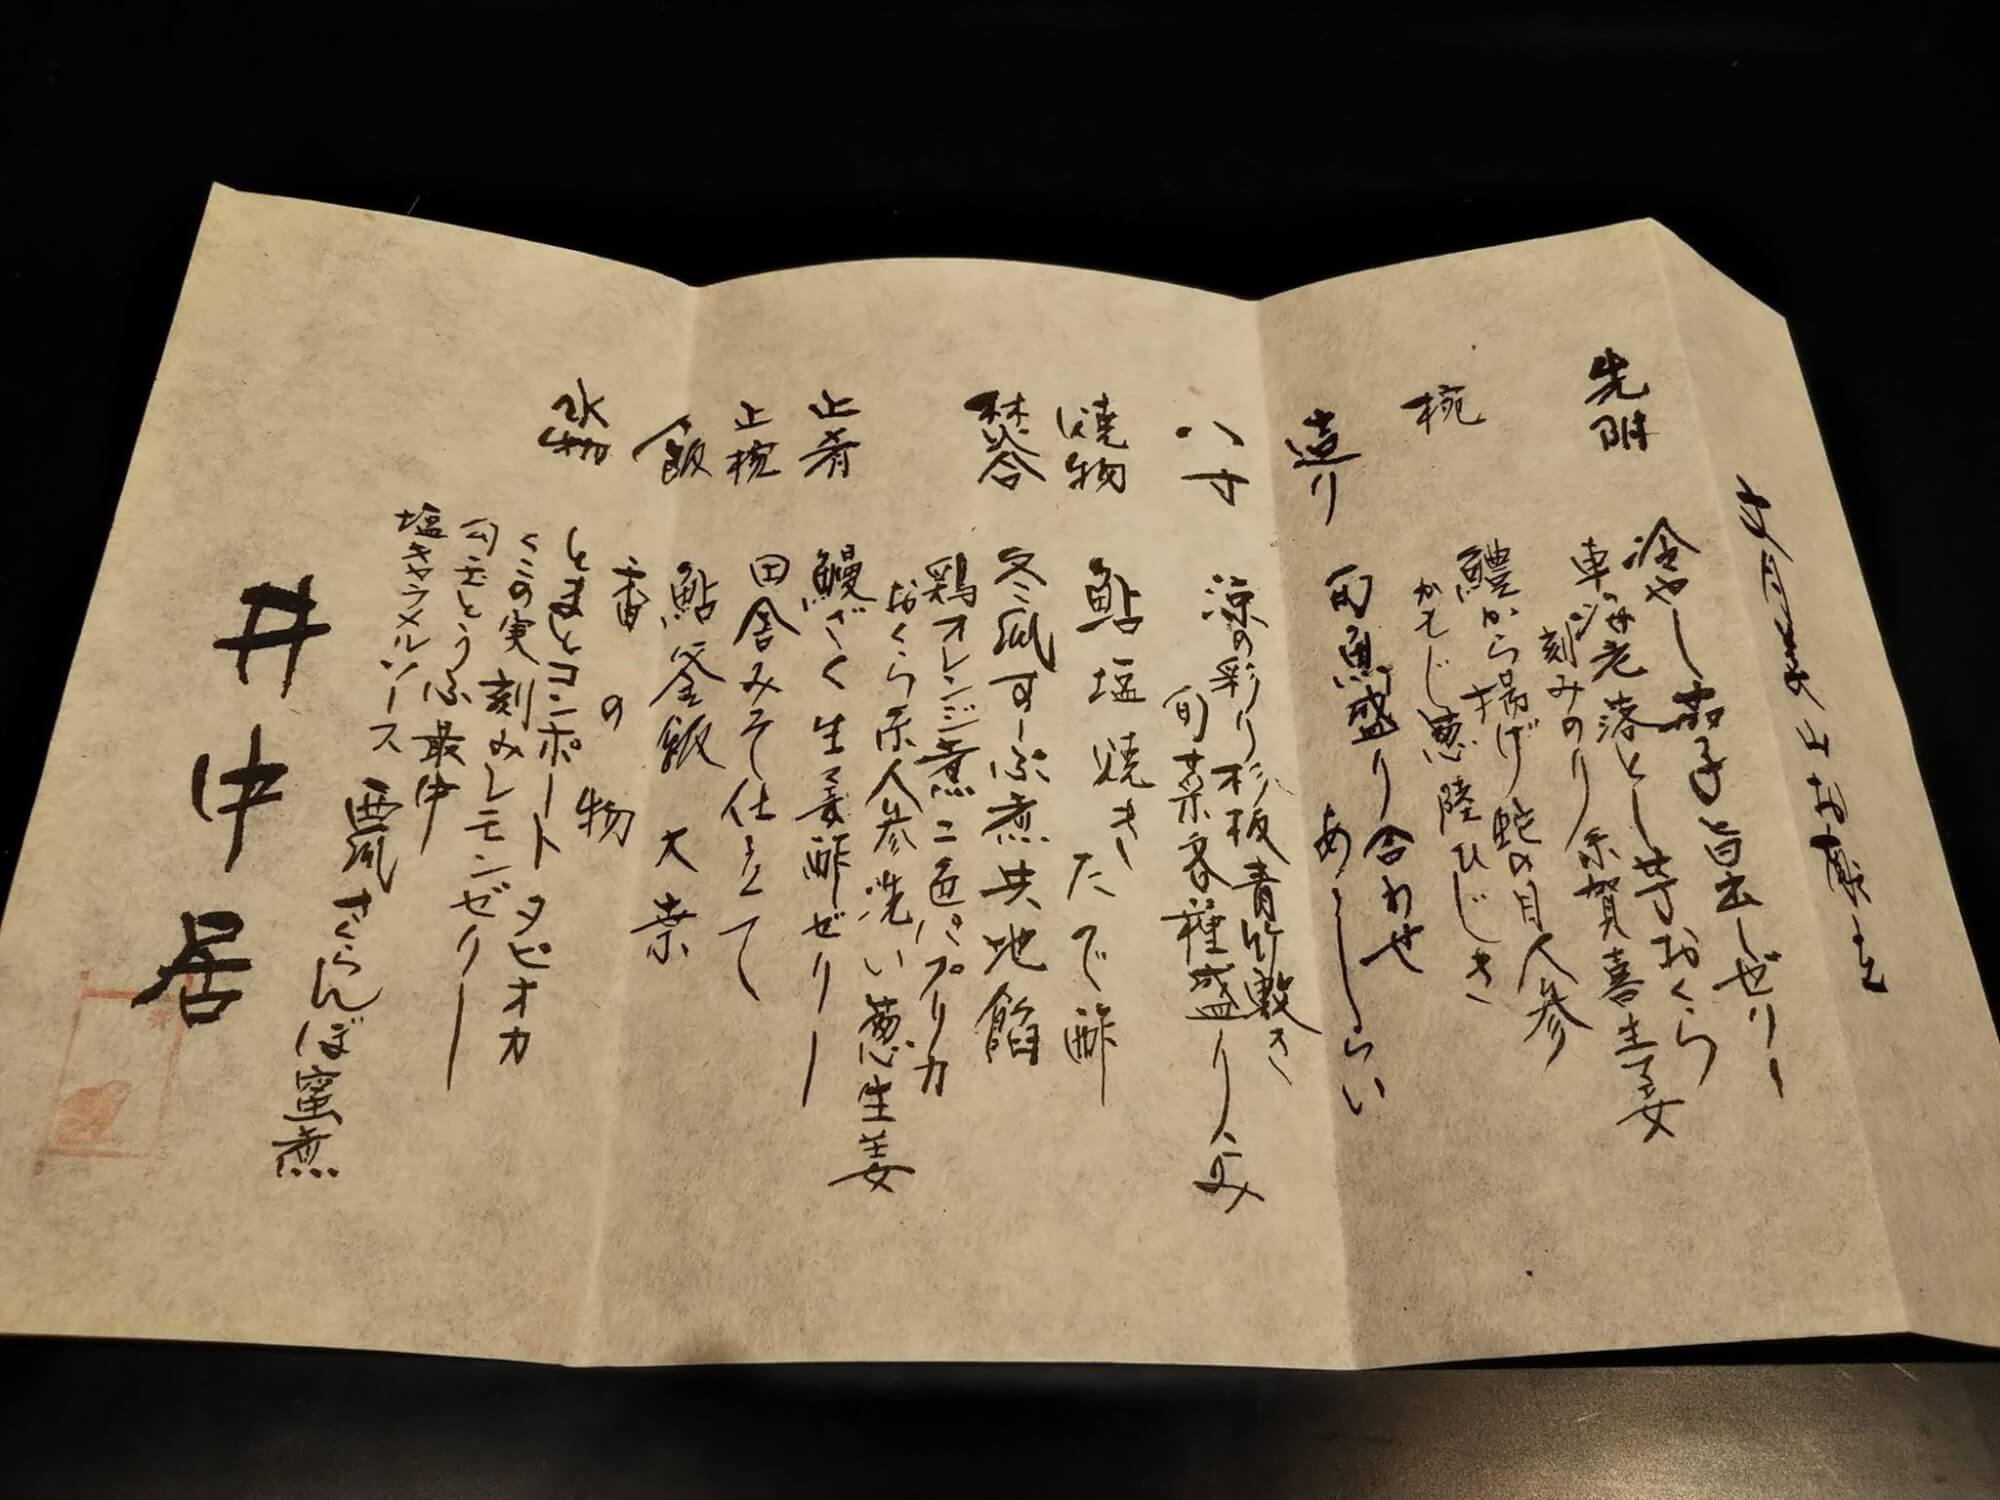 先附
冷やし茄子旨出しゼリー
車海老落とし芋おくら
刻みのり 糸賀喜生姜
椀
鱧から揚げ 蛇の目人参
かもじ葱 陸ひじき
造り
旬魚盛り合わせ
あしらい
八寸
涼の彩り杉板青竹敷き
旬菜各種盛り込み
焼物
鮎塩焼き たで酢
焚合
冬瓜すーぷ煮共地餡
鶏オレンジ煮 二色パプリカ
おくら糸人参洗い葱生姜
止肴
鰻ざく 生姜酢ゼリー
止椀
田舎みそ仕立て
飯
鮎釜飯 大葉
香の物
水物
とまとコンポート タピオカ
くこの実 刻みレモンゼリー
勾玉とうふ最中
塩キャラメルソース
瓢 さくらんぼ蜜煮
井中居